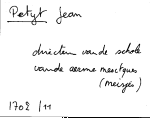 Petyt Jean
directeur vande schole
vande aerme mesctques
(meisjes)
1702 / 11